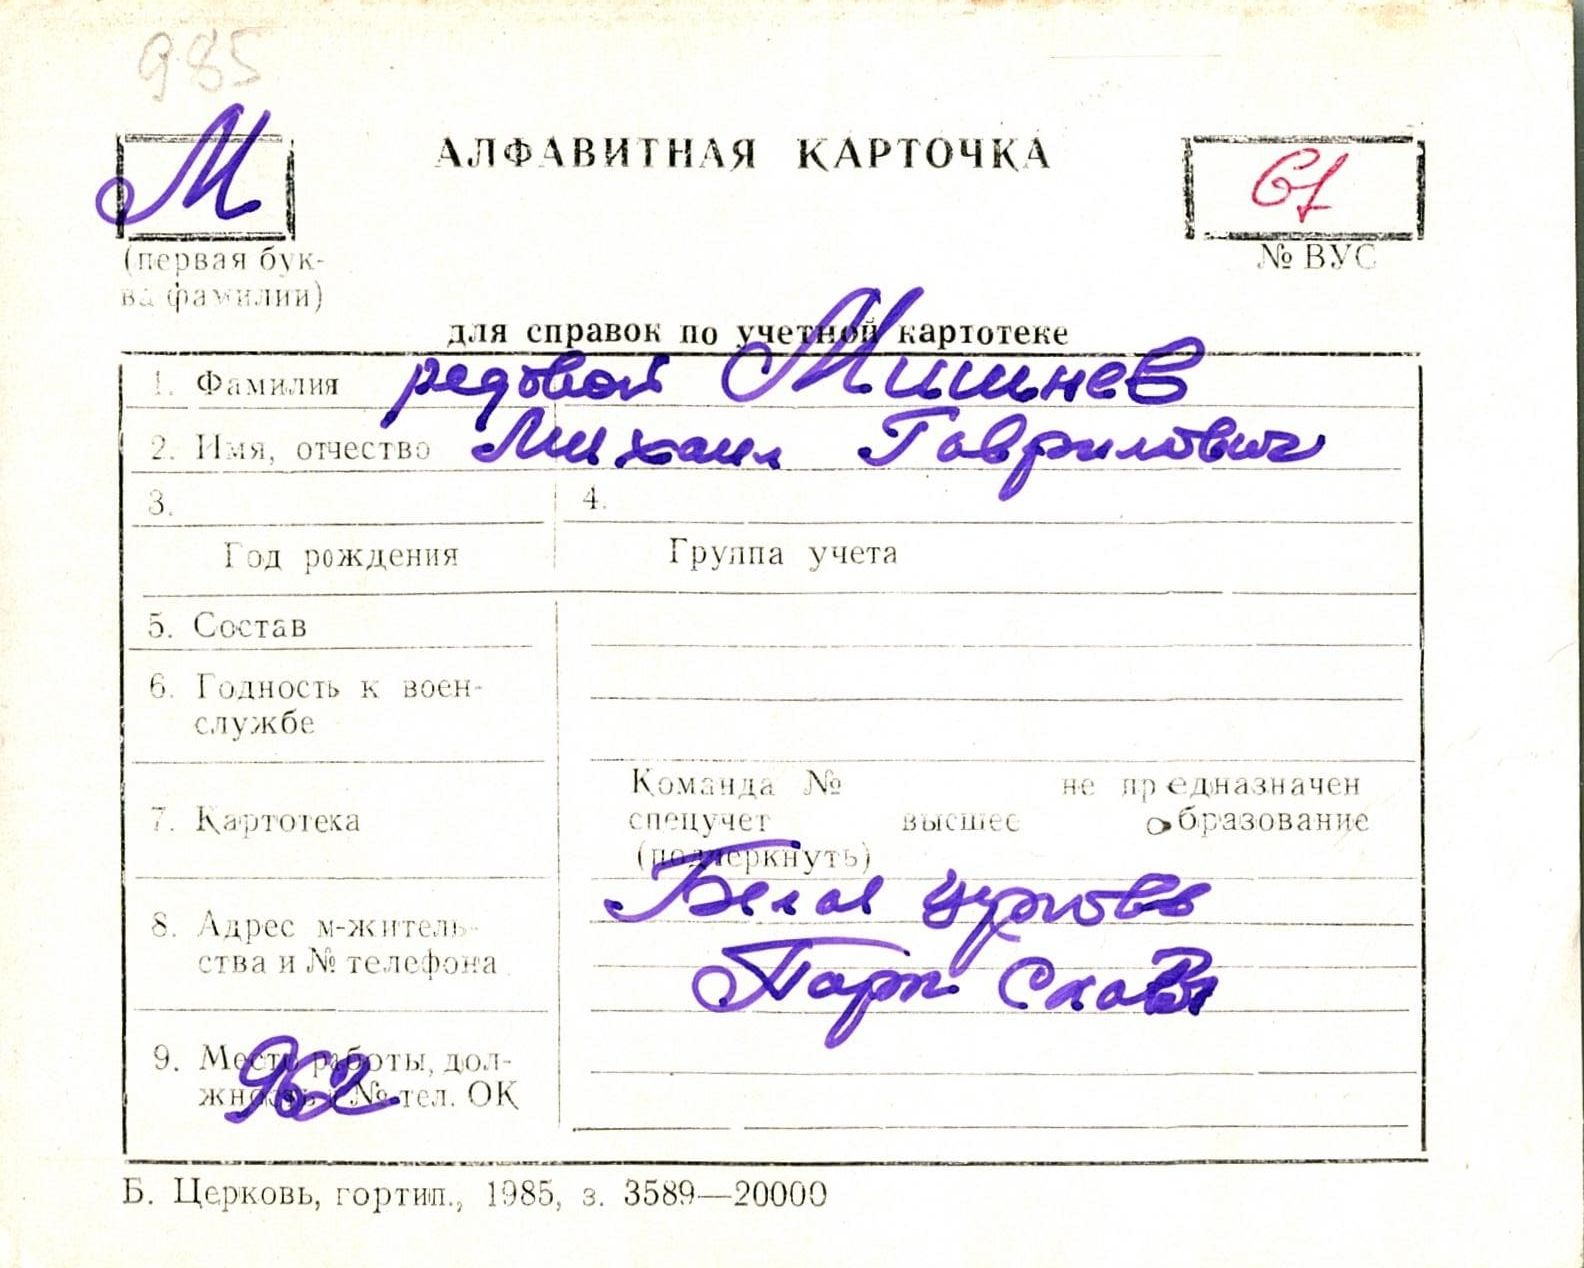 985
М
АЛФАВИТНАЯ КАРТОЧКА
61
(первая бук-
ва фамилии)
№ ВУС
для справок по учетной картотеке
1. Фамилия рядовой Мишнев
2. Имя, отчество Михаил Гаврилович
3. 4.
Год рождения Группа учета
5. Состав
6. Годность к воен-
службе
7. Картотека
Команда № не предназначен
спецучет высшее образование
(подчеркнуть)
8. Адрес м-житель-
ства и № телефона
Белая церковь
Парк Слава
9. Место работы, дол-
жность и № тел. ОК
962
Б. Церковь, гортип., 1985, з. 3589—20000